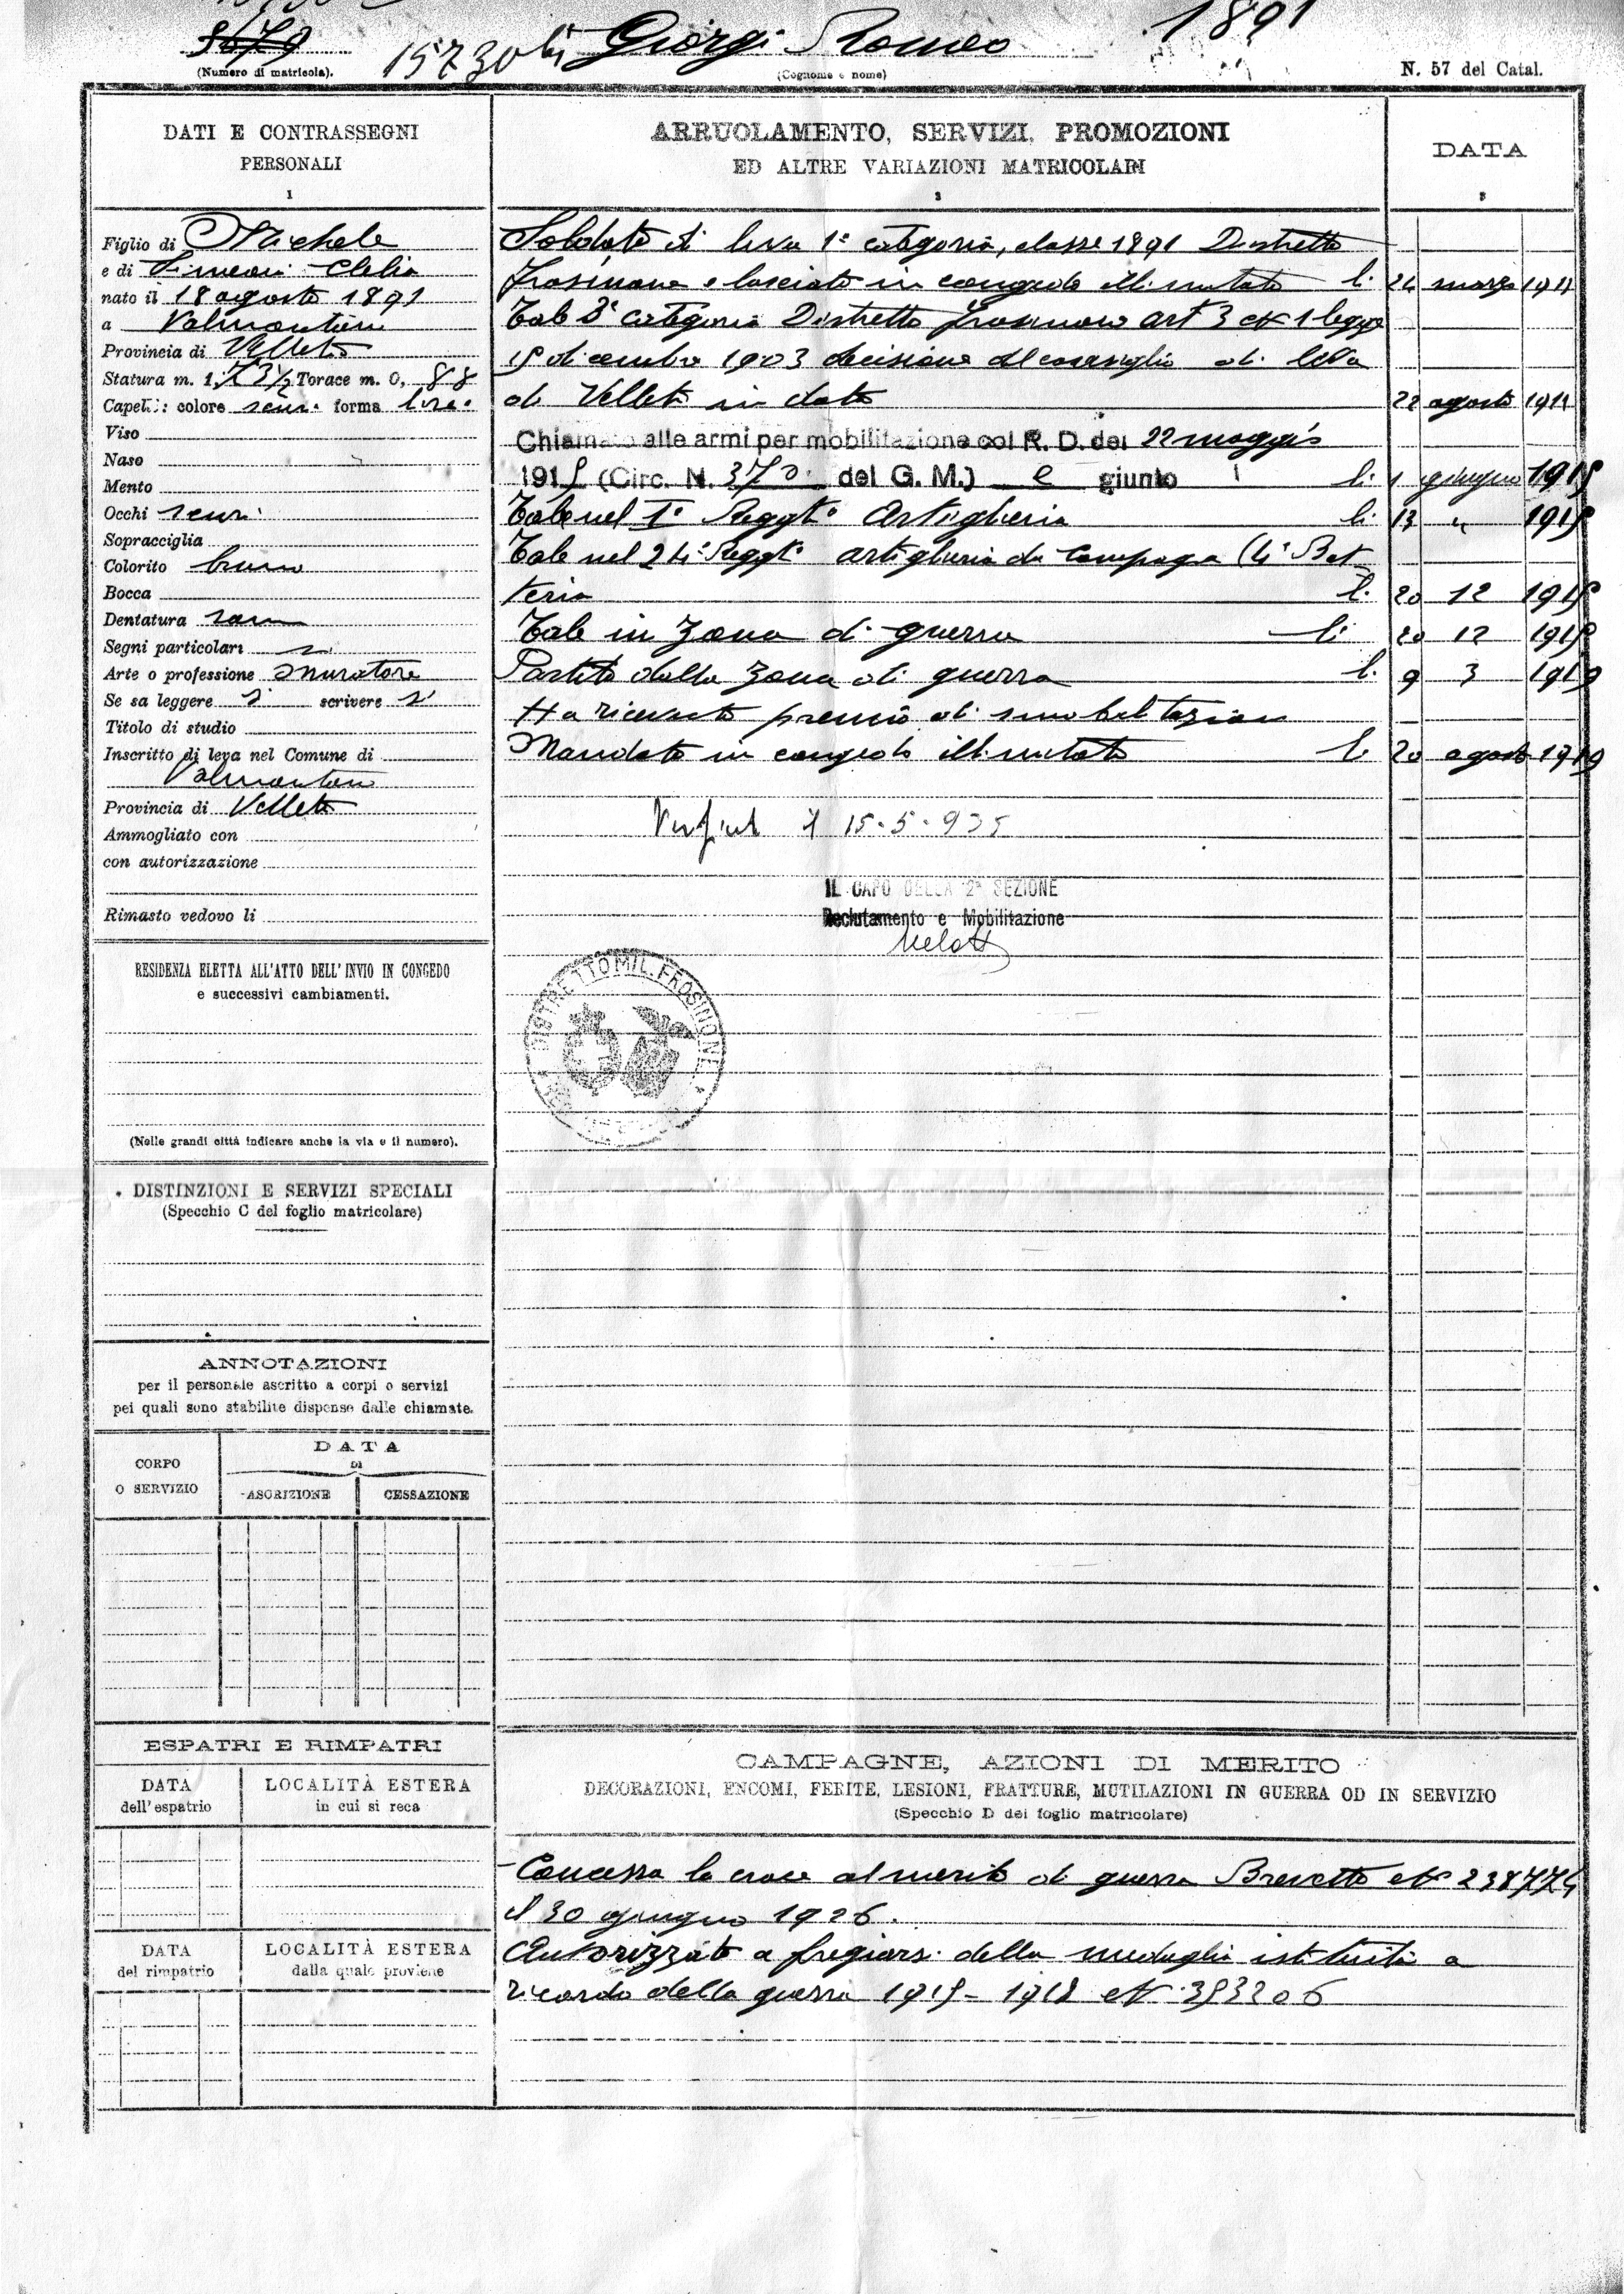 5679
15730 bis Giorgi Romeo 1891
(Numero di matricola).
(Cognome e nome)
N. 57 del Catal.
DATI E CONTRASSEGNI
PERSONALI
1
Figlio di Michele
e di Simeoni Clelia
nato il 18 agosto 1891
a Valmontone
Provincia di Velletri
Statura m. 1, 73½ Torace m. 0, 88
Capelli: colore scuri forma lisci
Viso
Naso
Mento
Occhi scuri
Sopracciglia
Colorito bruno
Bocca
Dentatura sana
Segni particolari
Arte o professione muratore
Se sa leggere si scrivere si
Titolo di studio
Inscritto di leva nel Comune di
Valmontone
Provincia di Velletri
Ammogliato con
con autorizzazione
Rimasto vedovo li
RESIDENZA ELETTA ALL'ATTO DELL'INVIO IN CONGEDO
e successivi cambiamenti.
(Nelle grandi città indicare anche la via e il numero).
DISTINZIONI E SERVIZI SPECIALI
(Specchio C del foglio matricolare)
ANNOTAZIONI
per il personale ascritto a corpi o servizi
pei quali sono stabilite dispense dalle chiamate.
CORPO
O SERVIZIO
DATA
DI
ASCRIZIONE
CESSAZIONE
ESPATRI E RIMPATRI
DATA
dell'espatrio
LOCALITÀ ESTERA
in cui si reca
DATA
del rimpatrio
LOCALITÀ ESTERA
dalla quale proviene
ARRUOLAMENTO, SERVIZI, PROMOZIONI
ED ALTRE VARIAZIONI MATRICOLARI
2
DATA
3
Soldato di leva 1ª categoria, classe 1891 Distretto
Frosinone e lasciato in congedo illimitato li 24 marzo 1911
Tale 2ª categoria Distretto Frosinone art 3 N 1 legge
15 dicembre 1903 decisione del consiglio di leva
di Velletri in data 22 agosto 1911
Chiamato alle armi per mobilitazione col R. D. del 22 maggio
1915 (Circ. N. 370 del G. M.) e giunto li 1 giugno 1915
Tale nel 1º Reggto Artiglieria li 13 " 1915
Tale nel 24º Reggto artiglieria da Campagna (4ª Bat
teria li 20 12 1915
Tale in zona di guerra li 20 12 1915
Partito dalla zona di guerra li 9 3 1919
Ha ricevuto premio di smobilitazione
Mandato in congedo illimitato li 20 agosto 1919
il 15-5-935
IL CAPO DELLA 2ª SEZIONE
Reclutamento e Mobilitazione
DISTRETTO MIL. FROSINONE
CAMPAGNE, AZIONI DI MERITO
DECORAZIONI, ENCOMI, FERITE, LESIONI, FRATTURE, MUTILAZIONI IN GUERRA OD IN SERVIZIO
(Specchio D del foglio matricolare)
Concessa la croce al merito di guerra Brevetto N 238774
il 30 giugno 1926.
Autorizzato a fregiarsi della medaglia istituita a
ricordo della guerra 1915-1918 N. 353206